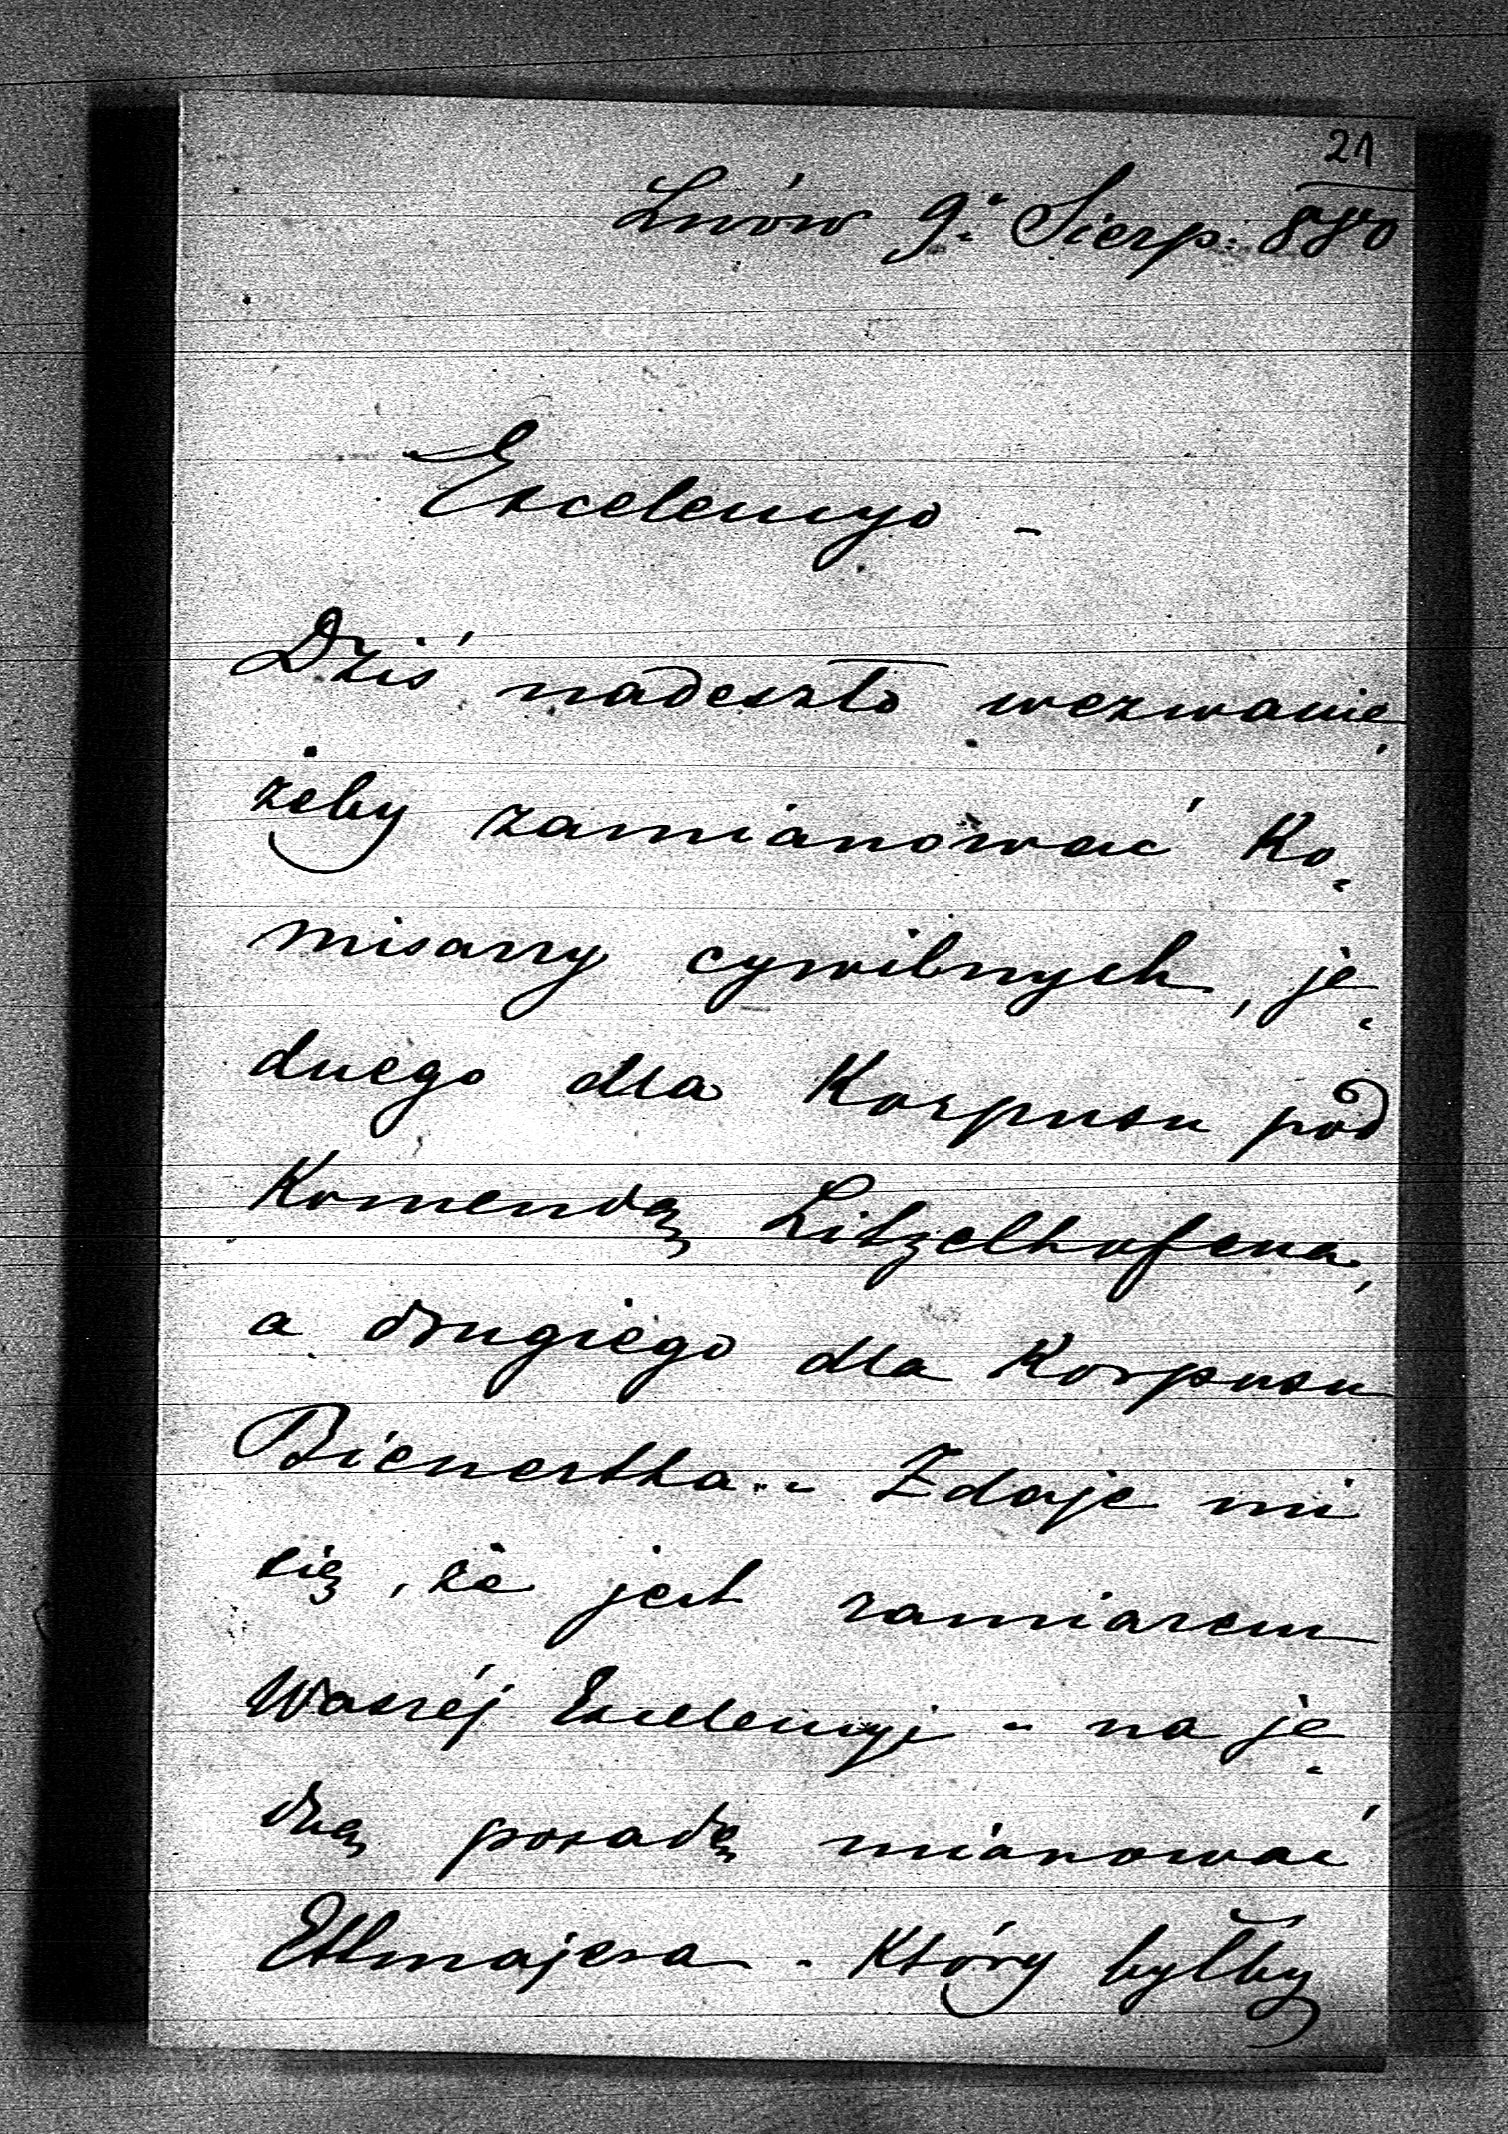 21
Lwów 9. Sierp: 880
Excelencyo -
Dziś nadeszło wezwanie,
żeby zamianować Ko-
misarzy cywilnych, je-
dnego dla Korpusu pod
Komendą Litzelhofena,
a drugiego dla Korpusu
Bienertha. - Zdaje mi
się, że jest zamiarem
Waszéj Excelencyi - na je-
dną posadę mianować
Etlmajera. Który byłby